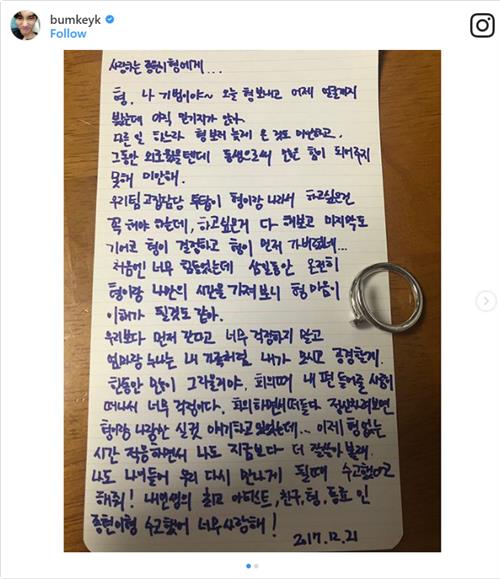 bumkeyk
Follow
사랑하는 종현이형에게...
형. 나 기범이야~ 오늘 형 보내고 어제 얼굴까지
봤는데 아직 믿기지가 않아
다른 일 하느라 형 보러 늦게 온 것도 미안하고,
그동안 외로웠을텐데 동생으로써 많은 힘이 되어주지
못해 미안해.
우리팀 고집담당 둘답이 형이랑 나라서 하고싶은건
꼭 해야 하는데, 하고싶은거 다 해보고 마지막도
기어코 형이 결정하고 형이 먼저 가버렸네...
처음엔 너무 힘들었는데 삼일동안 온전히
형이랑 나만의 시간을 가져보니 형 마음이
이해가 될것도 같아.
우리보다 먼저 간다고 너무 걱정하지 말고
엄마랑 누나는 내 가족처럼 내가 모시고 공경할게.
한동안 많이 그리울거야. 회의때 내 편 들어줄 사람이
떠나서 너무 걱정이다. 회의하면서 떠들다 정신차려보면
형이랑 나랑만 실컷 얘기하고있었는데... 이제 형 없는
시간 적응하면서 나도 지금보다 더 잘살아볼래.
나도 나이들어 우리 다시 만나게 될때 수고했다고
해줘! 내인생의 최고 아티스트, 친구, 형, 동료 인
종현이형 수고했어 너무 사랑해!
2017.12.21